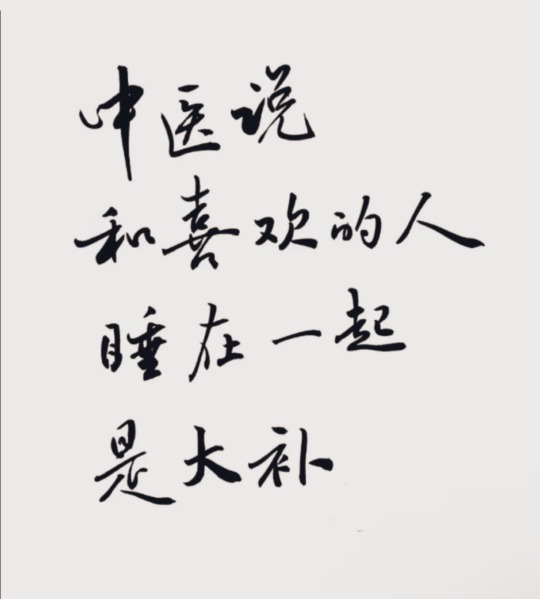 中医说
和喜欢的人
睡在一起
是大补